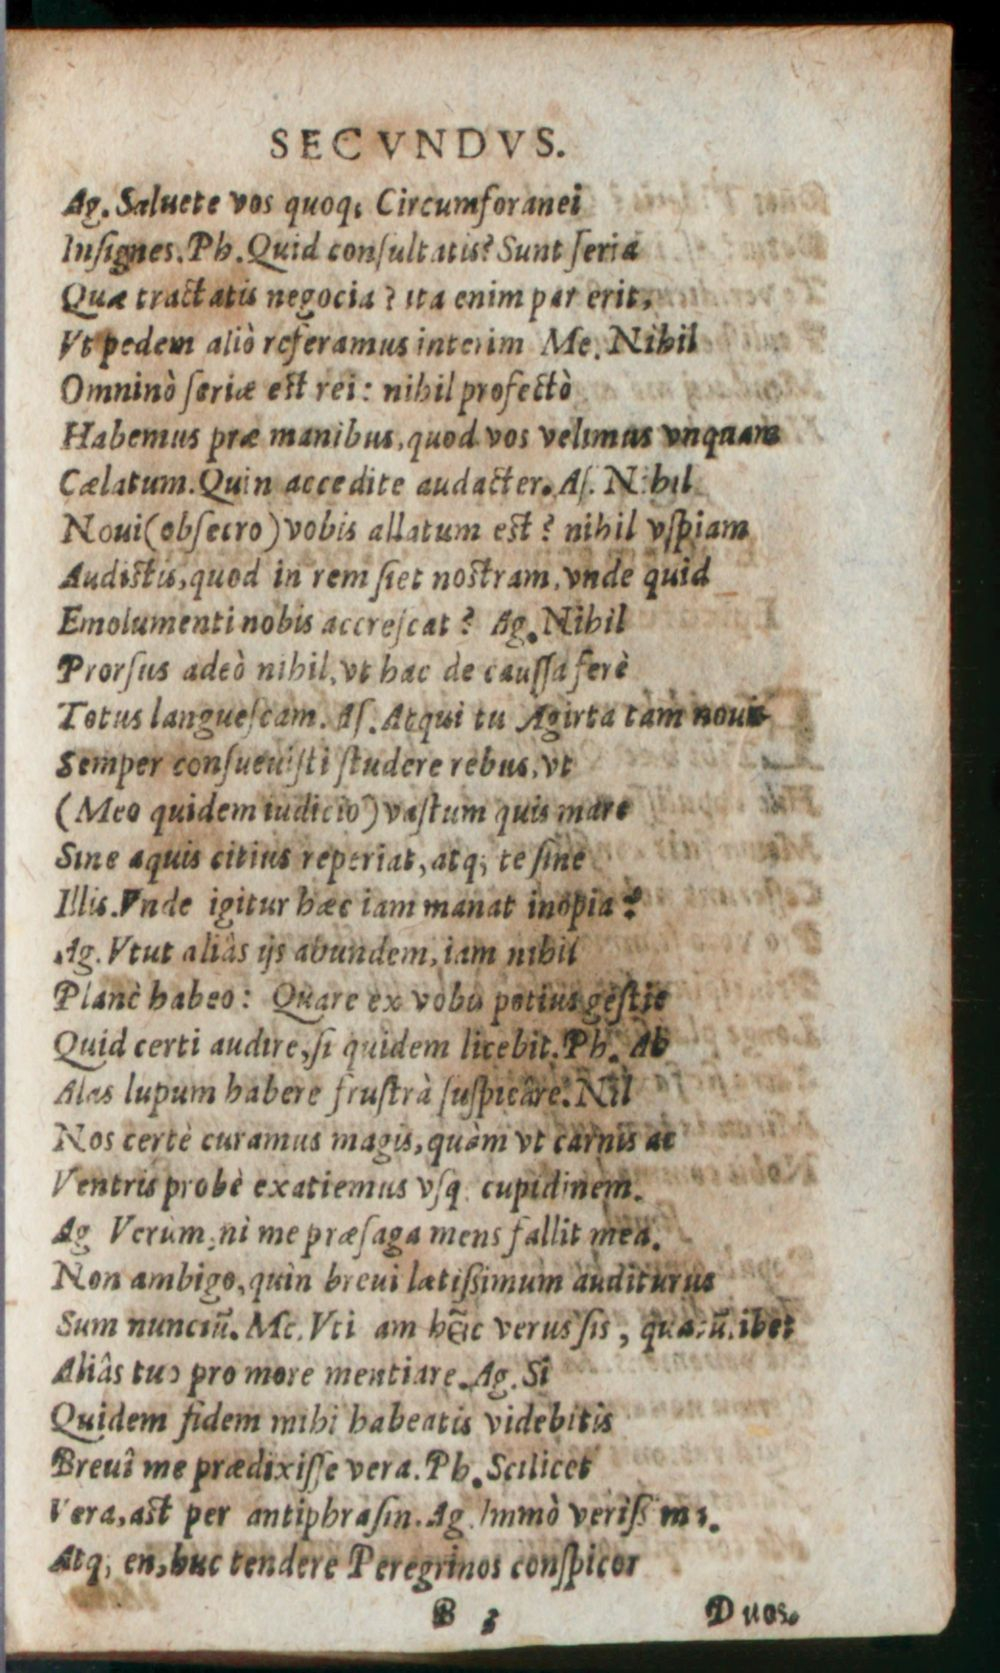 SECVNDVS.
Ag. Saluete vos quoq; Circumforanei
Inſignes. Ph. Quid conſultatis? Sunt ſeria
Quæ tractatis negocia? ita enim par erit,
Vt pedem aliò referamus interim Me. Nihil
Omninò ſeriæ eſt rei: nihil profectò
Habemus præ manibus, quod vos velimus vnquam
Cælatum. Quin accedite audacter. Aſ. Nihil
Noui (obſecro) vobis allatum eſt? nihil vſpiam
Audiſtis, quod in rem ſiet noſtram, vnde quid
Emolumenti nobis accreſcat? Ag. Nihil
Prorſus adeò nihil, vt hac de cauſſa ferè
Totus langueſcam. Aſ. Atqui tu Agirta tam nouis
Semper conſueuiſti ſtudere rebus, vt
(Meo quidem iudicio) vaſtum quis mare
Sine aquis citius reperiat, atq; te ſine
Illis. Vnde igitur hæc iam manat inopia?
Ag. Vtut aliâs ijs abundem, iam nihil
Planè habeo: Quare ex vobis potius geſtio
Quid certi audire, ſi quidem licebit. Ph. Ab
Alas lupum habere fruſtrà ſuſpicâre. Nil
Nos certè curamus magis, quàm vt carnis ac
Ventris probè exatiemus vſq; cupidinem.
Ag Verùm, ni me præſaga mens fallit mea.
Non ambigo, quin breui lætiſſimum auditurus
Sum nunciũ. Me. Vti am hæc verus ſis,
Aliâs tuo pro more mentiare. Ag. Si
Quidem fidem mihi habeatis videbitis
Breuî me prædixiſſe vera. Ph. Scilicet
Vera, aſt per antiphraſin. Ag. Immò veriſſima.
Atq; en, huc tendere Peregrinos conſpicor
B 3 Duos.